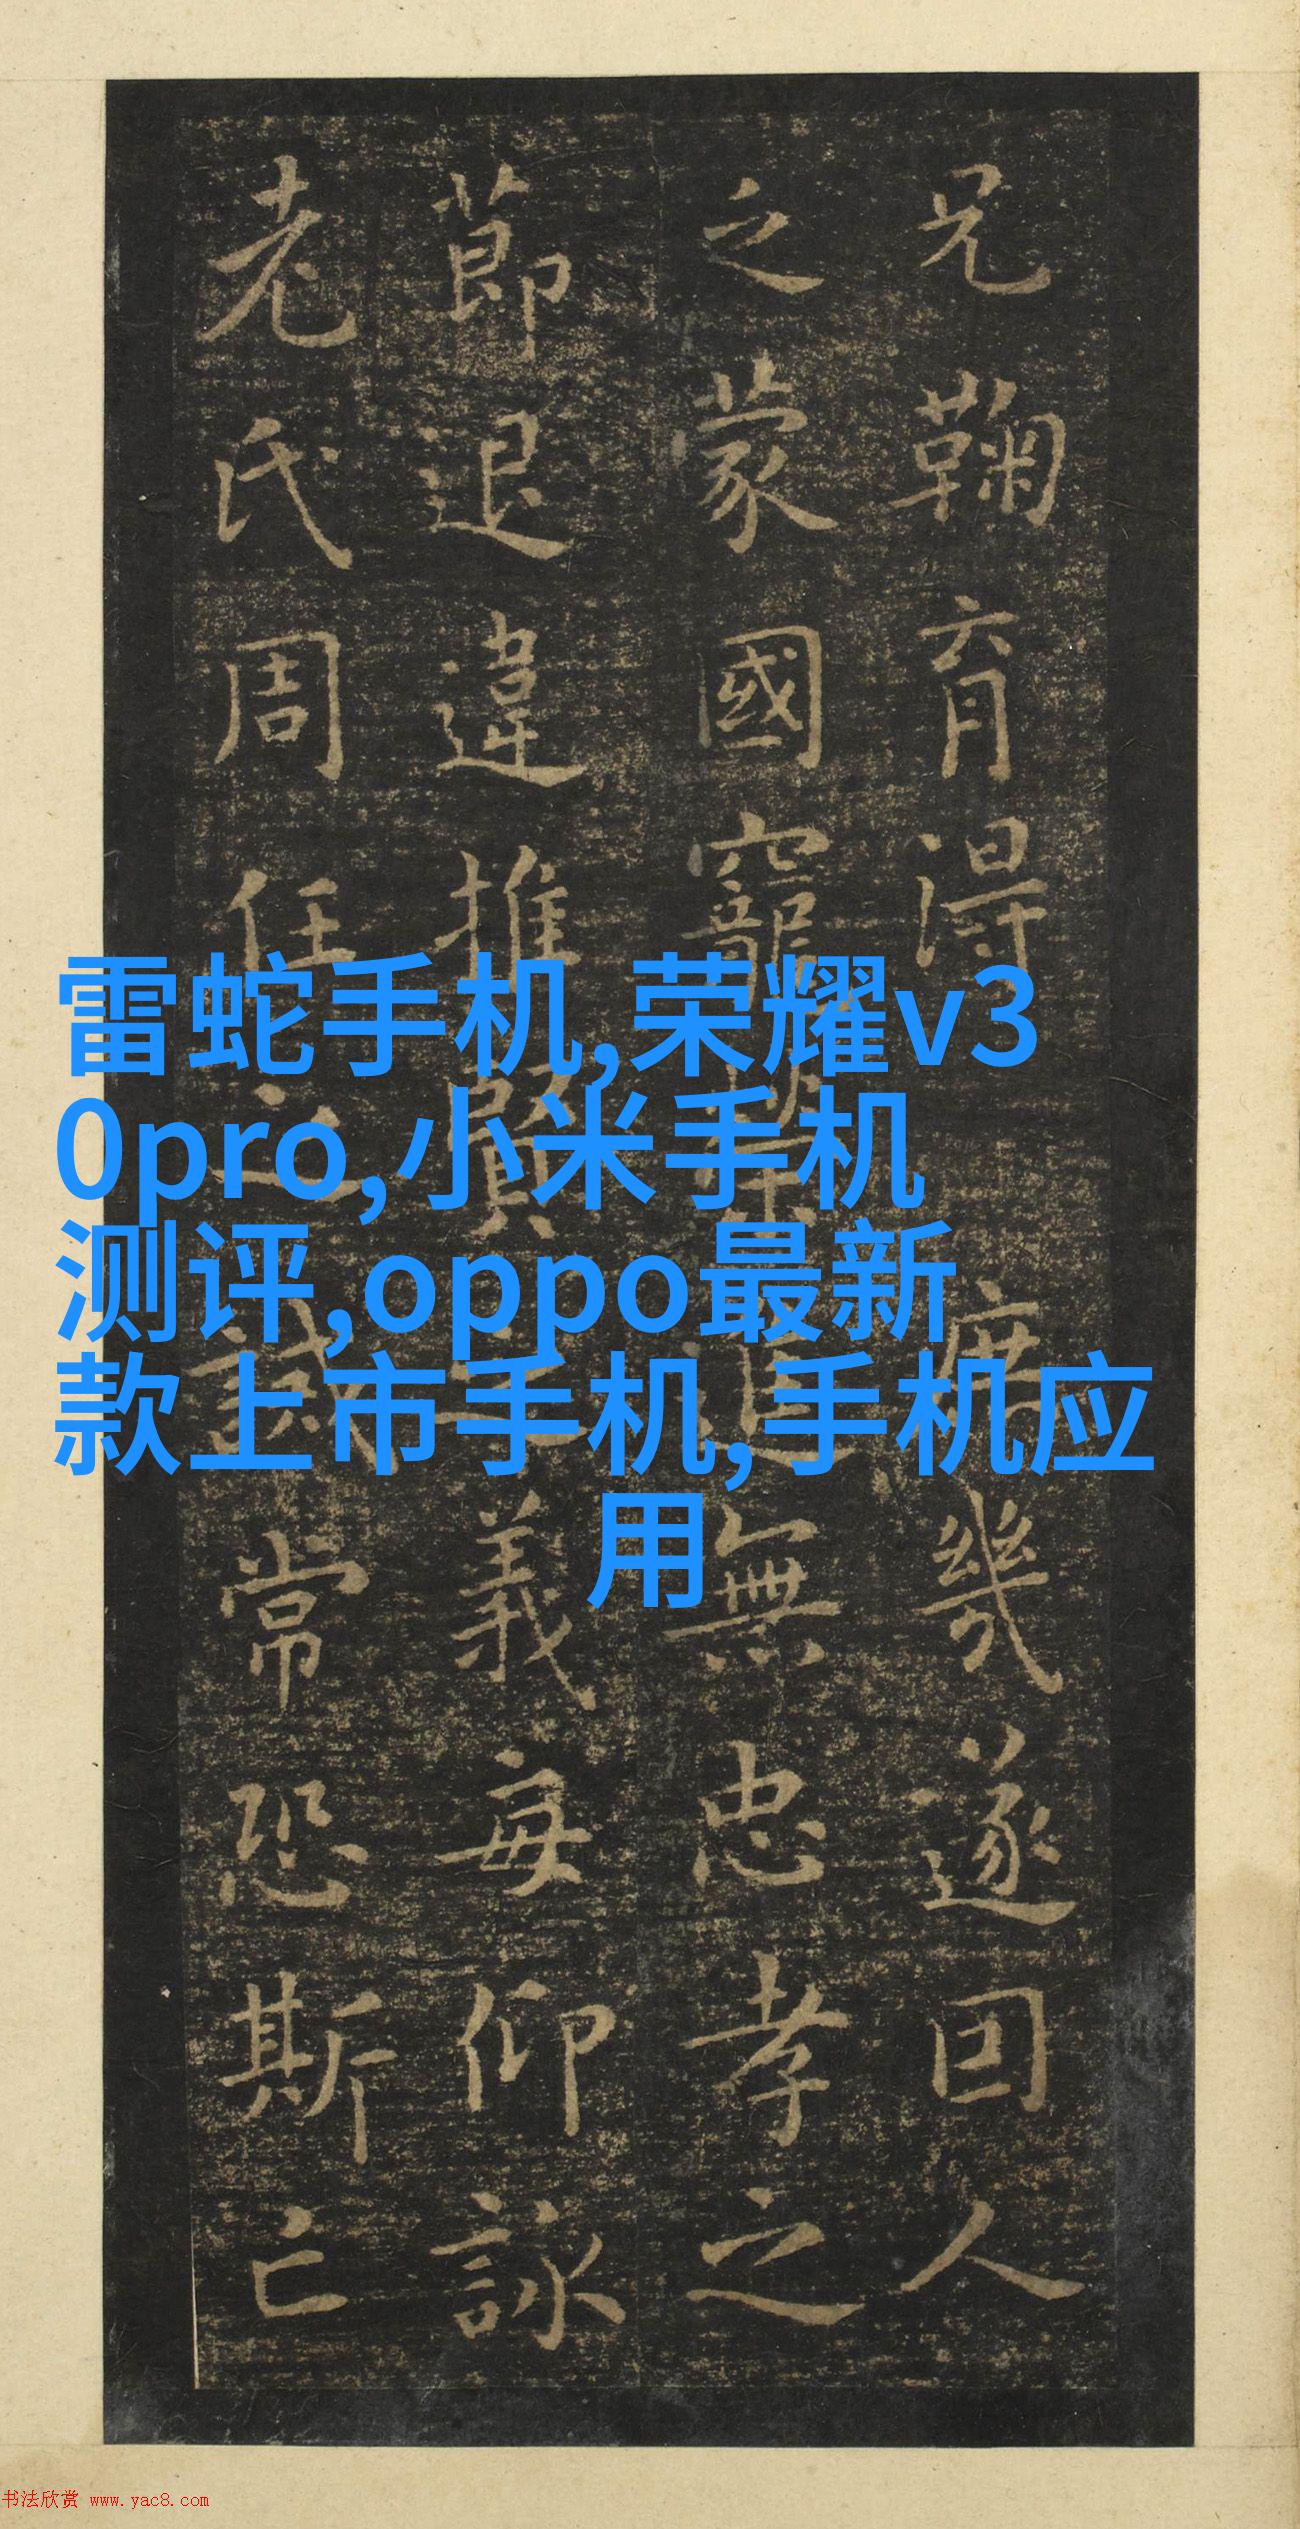 兄鞠育得庶幾遂因人
之蒙國寵進無忠孝之
節退違推賢之義每仰詠
老氏周任之誡常恐斯亡
雷蛇手机,荣耀v3
0pro,小米手机
测评,oppo最新
款上市手机,手机应
用
书法欣赏 www.yac8.com